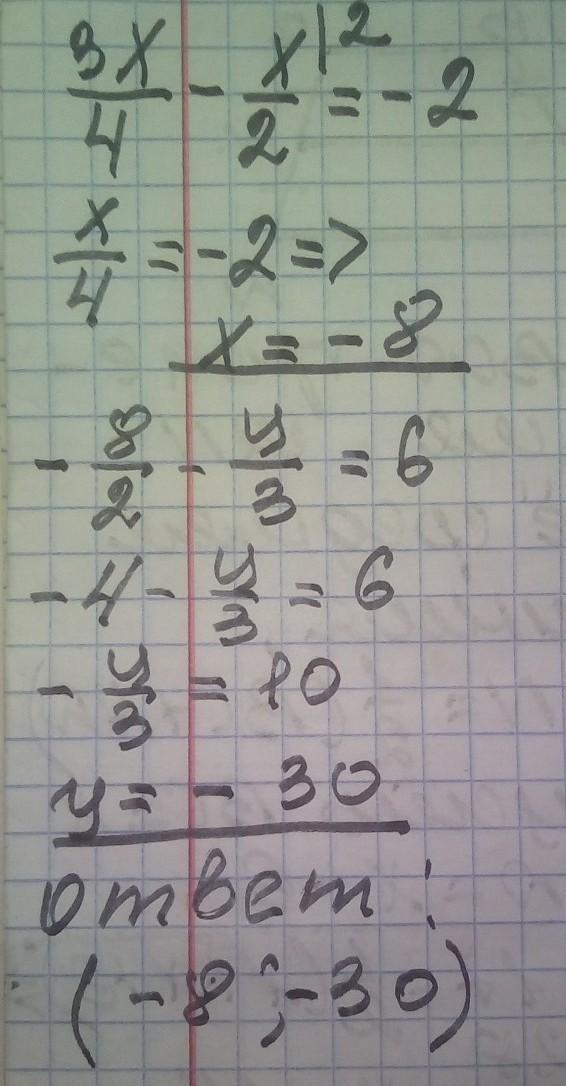 3x/4 - x/2 |2 = - 2
x/4 = - 2 =>
x = - 8
- 8/2 - y/3 = 6
- 4 - y/3 = 6
- y/3 = 10
y = - 30
ответ:
( - 8 ; - 30 )